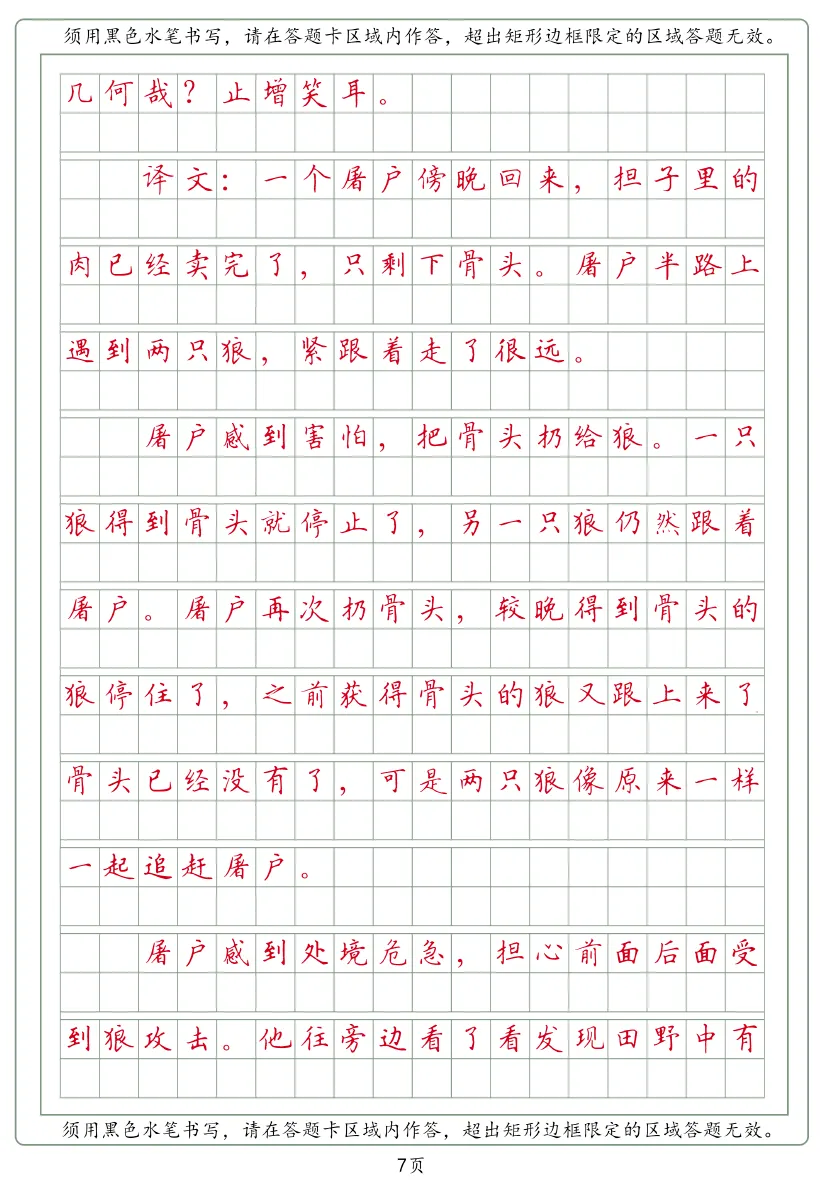 须用黑色水笔书写，请在答题卡区域内作答，超出矩形边框限定的区域答题无效。
几何哉？止增笑耳。
译文：一个屠户傍晚回来，担子里的
肉已经卖完了，只剩下骨头。屠户半路上
遇到两只狼，紧跟着走了很远。
屠户感到害怕，把骨头扔给狼。一只
狼得到骨头就停止了，另一只狼仍然跟着
屠户。屠户再次扔骨头，较晚得到骨头的
狼停住了，之前获得骨头的狼又跟上来了
骨头已经没有了，可是两只狼像原来一样
一起追赶屠户。
屠户感到处境危急，担心前面后面受
到狼攻击。他往旁边看了看发现田野中有
须用黑色水笔书写，请在答题卡区域内作答，超出矩形边框限定的区域答题无效。
7页